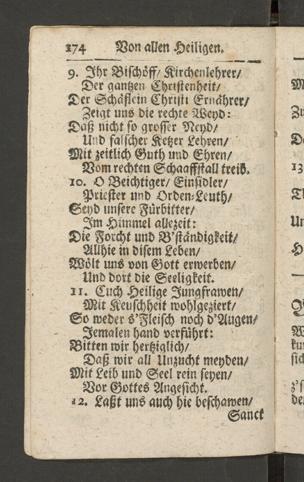 174 Von allen Heiligen.
9. Ihr Bischöff/ Kirchenlehrer/
Der gantzen Christenheit/
Der Schäflein Christi Ernährer/
Zeigt uns die rechte Weyd:
Daß nicht so grosser Neyd/
Und falscher Ketzer Lehren/
Mit zeitlich Guth und Ehren/
Vom rechten Schaaffstall treib.
10. O Beichtiger/ Einsidler/
Priester und Orden-Leuth/
Seyd unsere Fürbitter/
Im Himmel allezeit:
Die Forcht und B'ständigkeit/
Allhie in disem Leben/
Wölt uns von Gott erwerben/
Und dort die Seeligkeit.
11. Euch Heilige Jungfrawen/
Mit Keuschheit wohlgeziert/
So weder s'Fleisch noch d'Augen/
Jemalen hand verführt:
Bitten wir hertziglich/
Daß wir all Unzucht meyden/
Mit Leib und Seel rein seyen/
Vor Gottes Angesicht.
12. Laßt uns auch hie beschawen/
Sanct